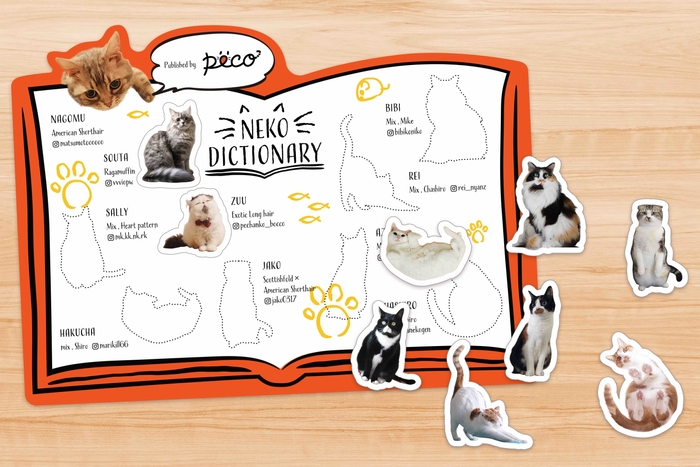 Published by peco
NEKO
DICTIONARY
NAGOMU
American Shorthair
@matsumotoooooo
SOUTA
Ragamuffin
@vvviepw
SALLY
Mix, Heart pattern
@mk.kk.nk.rk
ZUU
Exotic Long hair
@pechanko_bocco
JAKO
Scottishfold ×
American Shorthair
@jako0317
HAKUCHA
mix, Shiro @marikill66
BIBI
Mix, Mike
@bibikeniko
REI
Mix, Chashiro @rei_nyanz